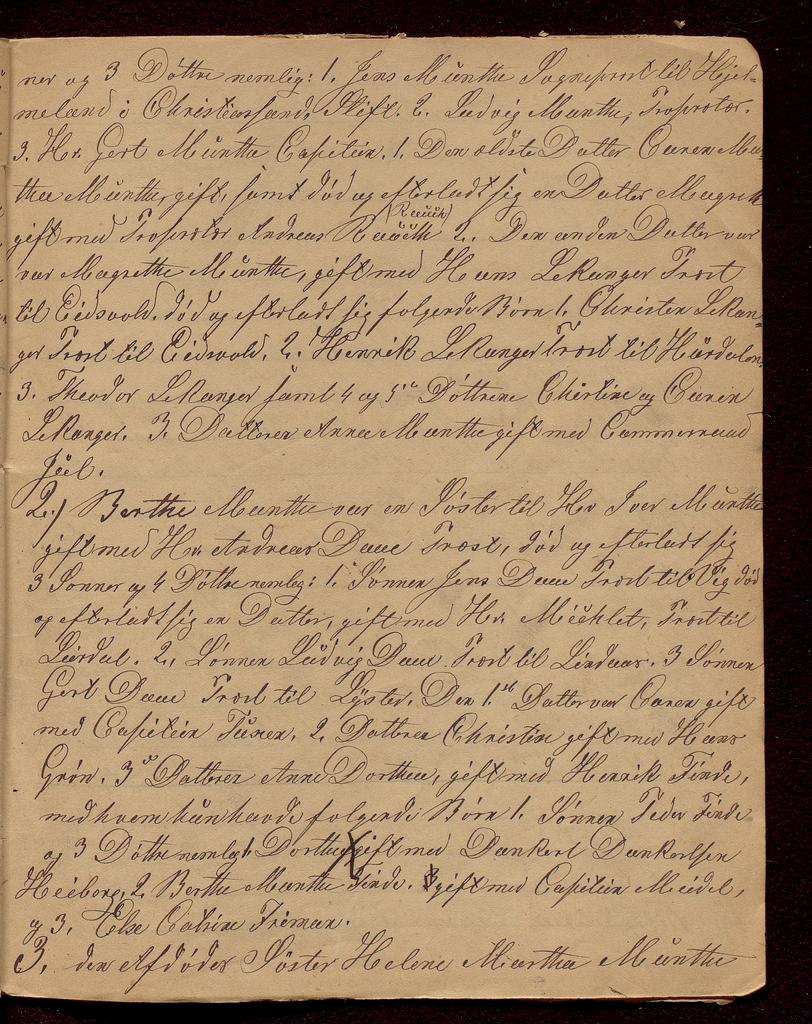 ner og 3 Döttre nemlig: 1. Jens Münthe Sogneprost til Hjel-
meland i Christiansand Stift. 2. Ludvig Münthe, Proprotær.
3. Hr. Gert Münthe Capitein. 1. Den ældste Datter Caren Ma-
thea Münthe, gift, samt död og efterladt sig en Datter Magreth
(Rauch)
gift med Proprotær Andreas 2. Den anden Datter var
var Magrethe Münthe, gift med Hans LeKanger Prost
til Eidsvold, död og efterladt sig folgende Börn 1. Christen LeKan-
ger Prost til Eidsvold. 2. Henrik LeKanger Prost til Hurdalen,
3. Theodor LeKanger samt 4 og 5te Döttrene Chirstine og Caren
LeKanger. 3. Datteren Anna Munthe gift med Cammerraad
Juel.
2.) Berthe Munthe var en Söster til Hr Iver Münthe
gift med Hr. Andreas Daae Prost, död og efterladt sig
3 Sønner og 4 Döttre nemlig: 1. Sønnen Jens Daae Prost til Vig död
og efterladt sig en Datter, gift med Hr. Prost til
Lærdal. 2. Sønnen Ludvig Daae Prost til Lindaas. 3 Sønnen
Gert Daae Prost til Lyster. Den 1.ste Datter var Caren gift
med Capitein Tuxen. 2. Datteren Christine gift med Hans
Grön. 3de Datteren Anne Dorthea, gift med Henrik Finde,
med hvem hun havde folgende Börn 1. Sønnen Peder Finde
og 3 Döttre nemlig 1. Dorthea gift med Dankert Dankertsen
Heiberg, 2. Berthe Munthe Finde. gift med Capitein Meidel,
og 3. Else Catrine Friman.
3. den Afdödes Söster Helene Martha Münthe